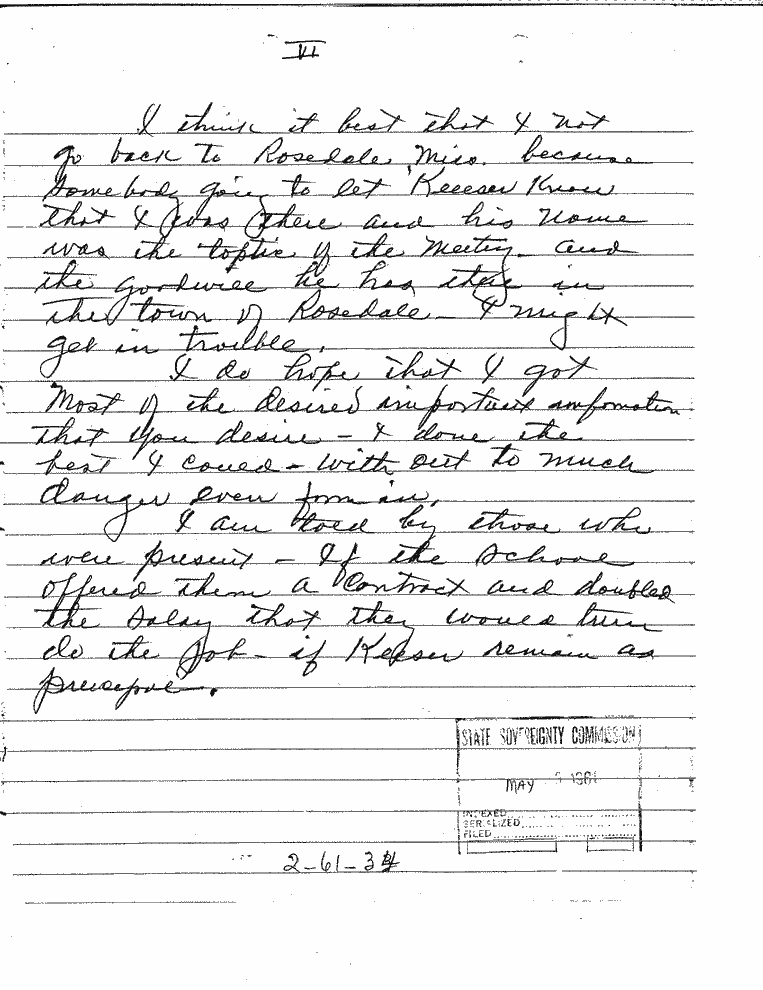 VI
I think it best that I not
go back to Rosedale, Miss. because
Somebody going to let Keeeser Know
that I was there and his name
was the toptic of the Meeting and
the goodwill he has there in
the town of Rosedale - I might
get in trouble.
I do hope that I got
Most of the desired important
that you desire - I done the
best I could - with out to much
danger even
I am told by those who
were present - If the School
offered them a Contract and doubled
the Salay that they would turn
do the Job - if Keeser remain as
STATE SOVEREIGNTY COMMISSION
MAY 1961
INDEXED
SERIALIZED
FILED
2-61-34